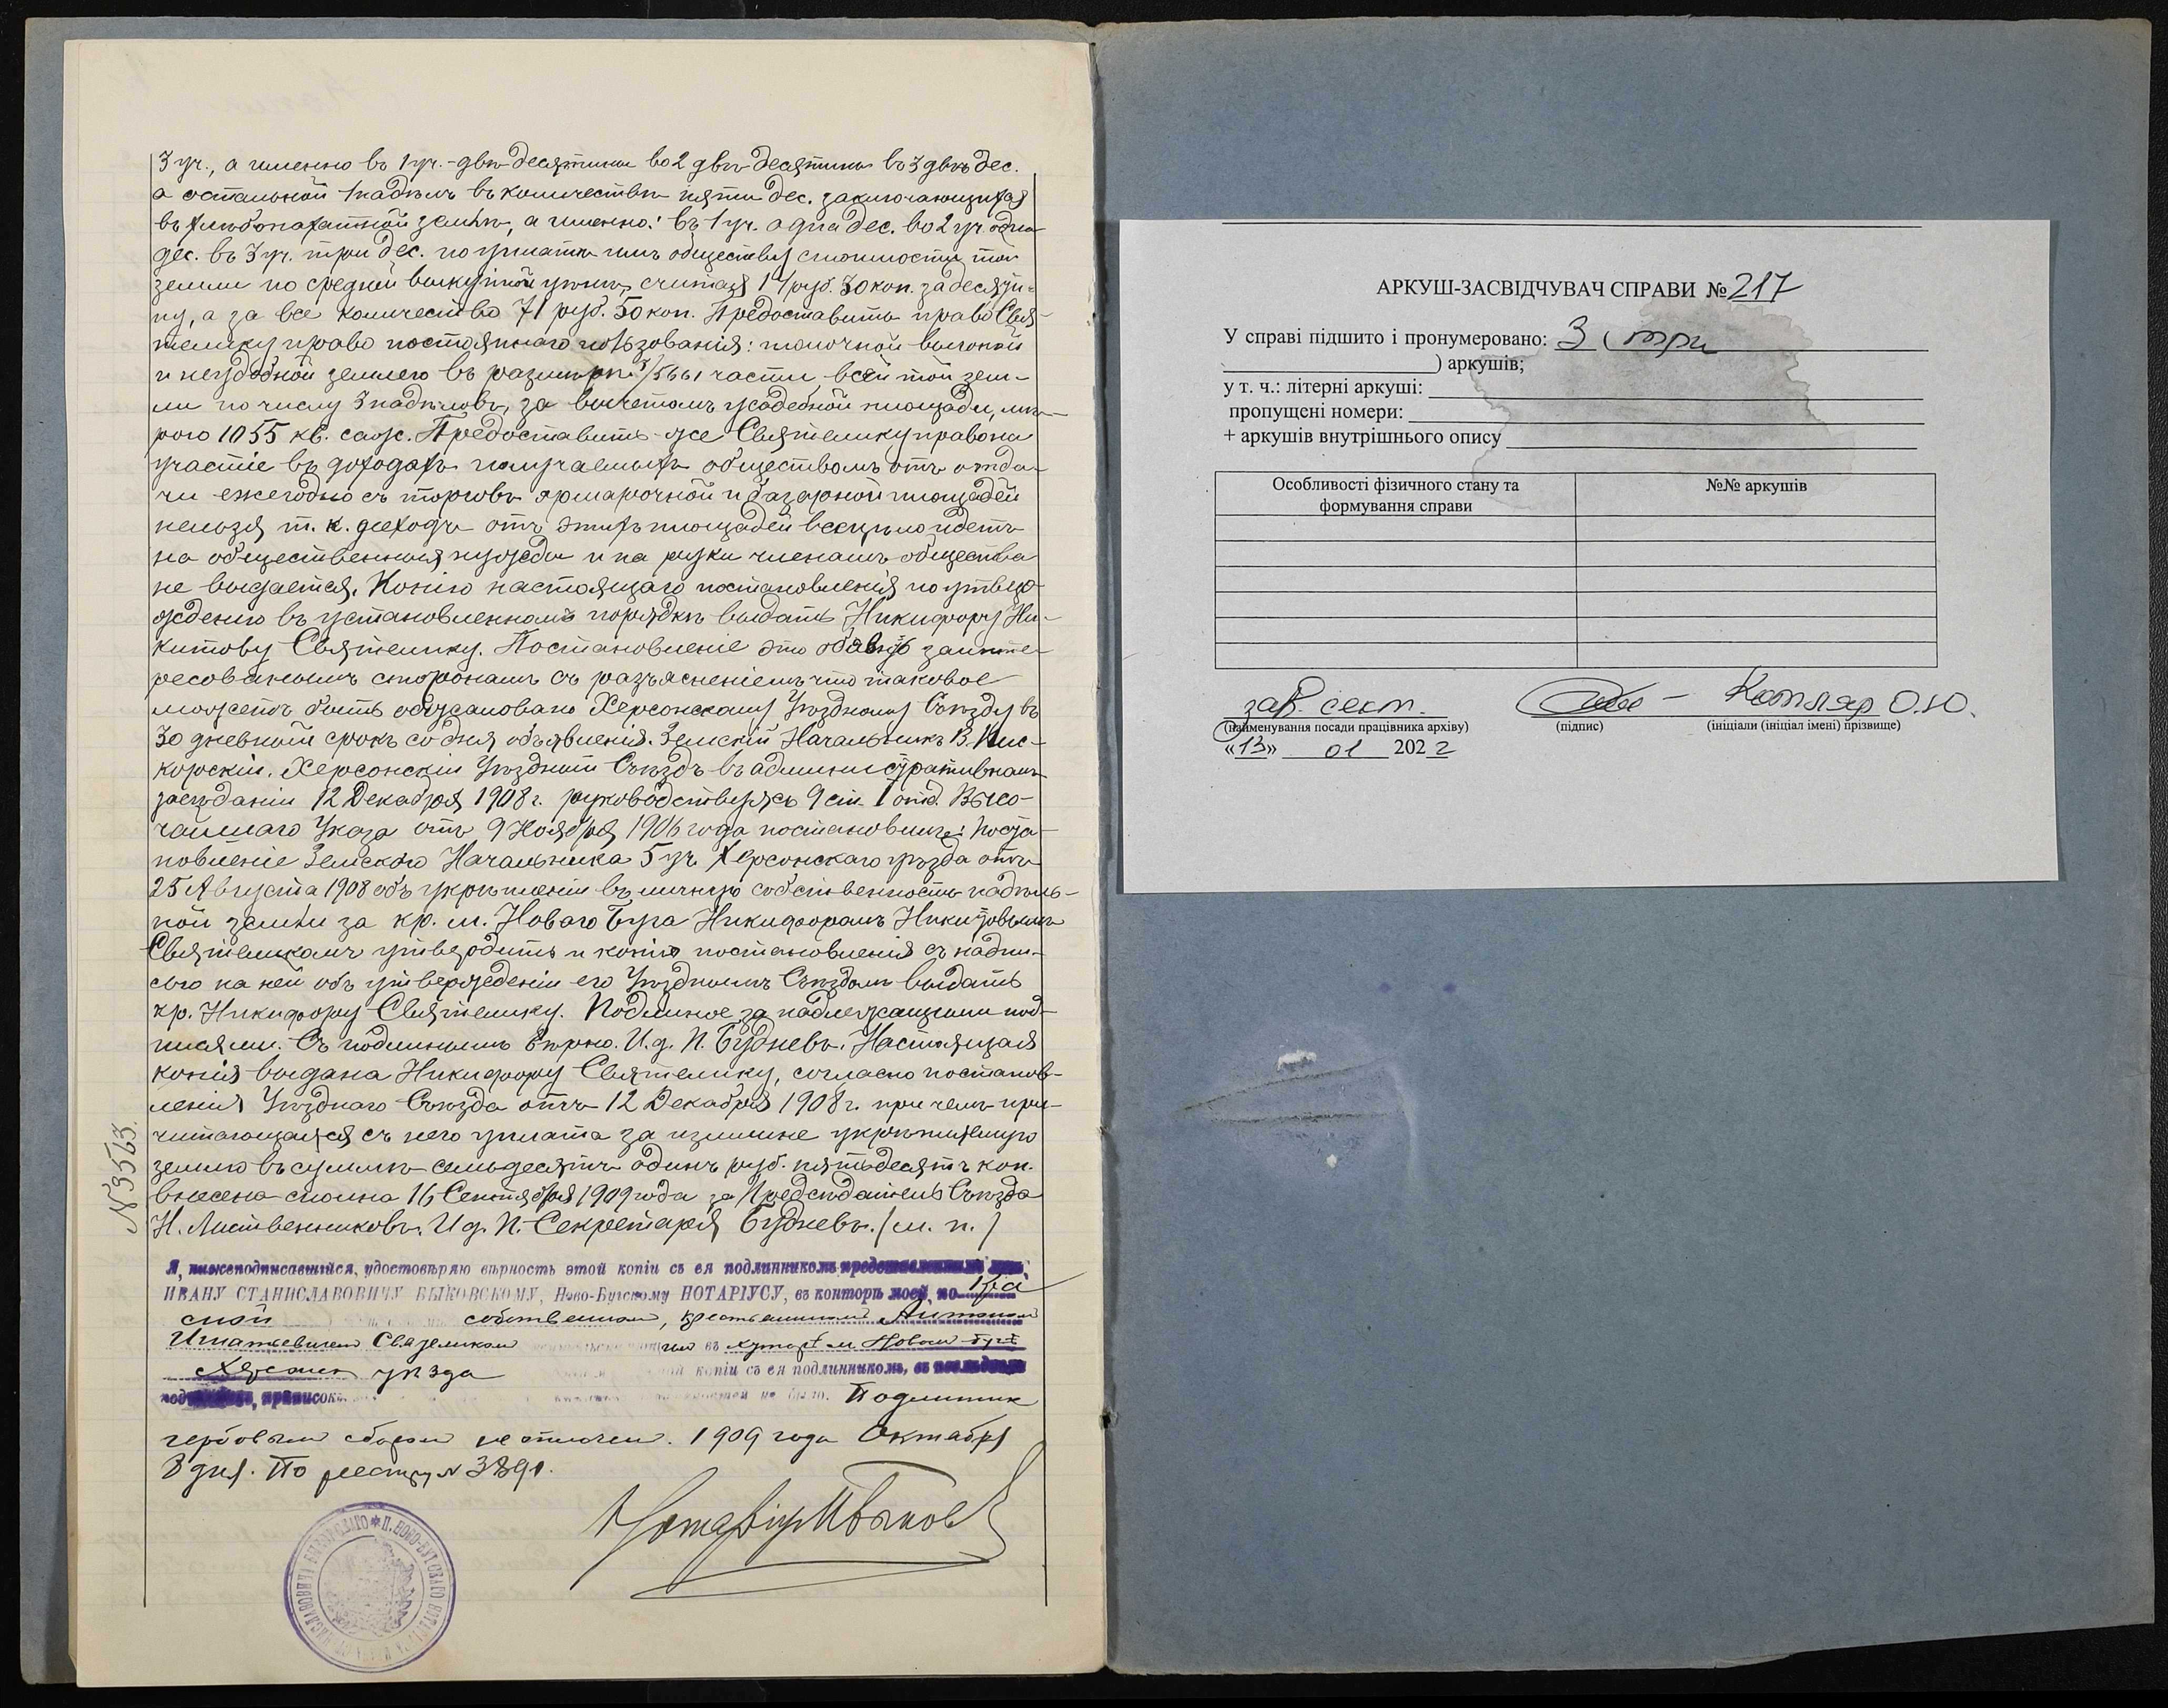 3 уч., а именно въ 1 уч. - двѣ десятины во 2 двѣ десятины въ 3 двѣ дес.
а остальной 1 надѣлъ въ количествѣ пяти дес. заключающихся
въ хлѣбопахатной землѣ, а именно: въ 1 уч. одна дес. во 2 уч. одна
дес. въ 3 уч. три дес. по уплатѣ имъ обществу стоимости той
земли по средней выкупной цѣнѣ, считая 14 руб. 30 коп. за десяти-
ну, а за все количество 71 руб. 50 коп. Предоставить право Свя-
телику право постояннаго пользованія: толочной выгонной
и неудобной землею въ размѣрѣ 3/5661 части всей той зем-
ли по числу 3 надѣловъ, за вычетомъ усадебной площади, мѣ-
рою 1055 кв. саж. Предоставить-же Святелику право на
участіе въ доходахъ получаемыхъ обществомъ отъ отда-
чи ежегодно съ торговъ ярмарочной и базарной площадей
нельзя т. к. доходъ отъ этихъ площадей всецѣло идетъ
на общественныя нужды и на руки членамъ общества
не выдается. Копію настоящаго постановленія по утвер-
жденію въ установленномъ порядкѣ выдать Никифору Ни-
китову Святелику. Постановленіе это объявить заинте-
ресованнымъ сторонамъ съ разъясненіемъ что таковое
можетъ быть обжаловано Херсонскому Уѣздному Съѣзду въ
30 дневный срокъ со дня объявленія. Земскій Начальникъ В. Пис-
корскій. Херсонскій Уѣздный Съѣздъ въ административномъ
засѣданіи 12 Декабря 1908 г. руководствуясь 9 ст. I отд. Высо-
чайшаго Указа отъ 9 Ноября 1906 года постановилъ: Поста-
новленіе Земскаго Начальника 5 уч. Херсонскаго уѣзда отъ
25 Августа 1908 объ укрѣпленіи въ личную собственность надѣль-
ной земли за кр. м. Новаго Буга Никифоромъ Никитовымъ
Святеликомъ утвердить и копію постановленія съ надпи-
сью на ней объ утвержденіи его Уѣзднымъ Съѣздомъ выдать
кр. Никифору Святелику. Подлиное за надлежащими под-
писями. Съ подлиннымъ вѣрно. И. д. П. Будневъ. Настоящая
копія выдана Никифору Святелику, согласно постанов-
ленія Уѣзднаго Съѣзда отъ 12 Декабря 1908 г. при чемъ при-
читающаяся съ него уплата за излишне укрѣпляемую
землю въ суммѣ семьдесятъ одинъ руб. пятьдесятъ коп.
внесена сполна 16 Сентября 1909 года за Предсѣдатель Съѣзда
Н. Лиственниковъ. И д. П. Секретаря Будневъ. / м. п. /
№ 3563.
Я, нижеподписавшійся, удостовѣряю вѣрность этой копіи съ ея подлинникомъ
ИВАНУ СТАНИСЛАВОВИЧУ БЫКОВСКОМУ, Ново-Бугскому НОТАРІУСУ, въ конторѣ моей,
собственном, крестьянином Антоном
Игнатьевичем Святеликом въ хуторѣ м Новом Бугѣ
Херсонск уѣзда копіи съ ея подлинникомъ, въ
приписокъ не было. Подлинник
гербовым сбором не оплочен. 1909 года Октября
8 дня. По реестру № 3891.
Нотаріус Быков
АРКУШ-ЗАСВІДЧУВАЧ СПРАВИ № 217
У справі підшито і пронумеровано: 3 ( три
) аркушів;
у т. ч.: літерні аркуші:
пропущені номери:
+ аркушів внутрішнього опису
Особливості фізичного стану та формування справи
№№ аркушів
зав. сект. Котляр О.Ю.
(найменування посади працівника архіву) (підпис) (ініціали (ініціал імені) прізвище)
«13» 01 2022